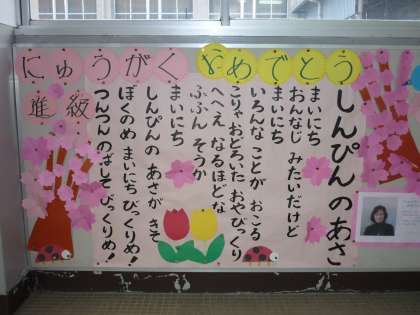 にゅうがく おめでとう
進級
しんぴんのあさ
まいにち
おんなじ みたいだけど
まいにち
いろんな ことが おこる
こりゃ おどろいた おやびっくり
へへえ なるほどな
ふふん そうか
まいにち
しんぴんの あさが きそ
ぼくのめ まいにち びっくりめ!
つんつん のばして びっくりめ!